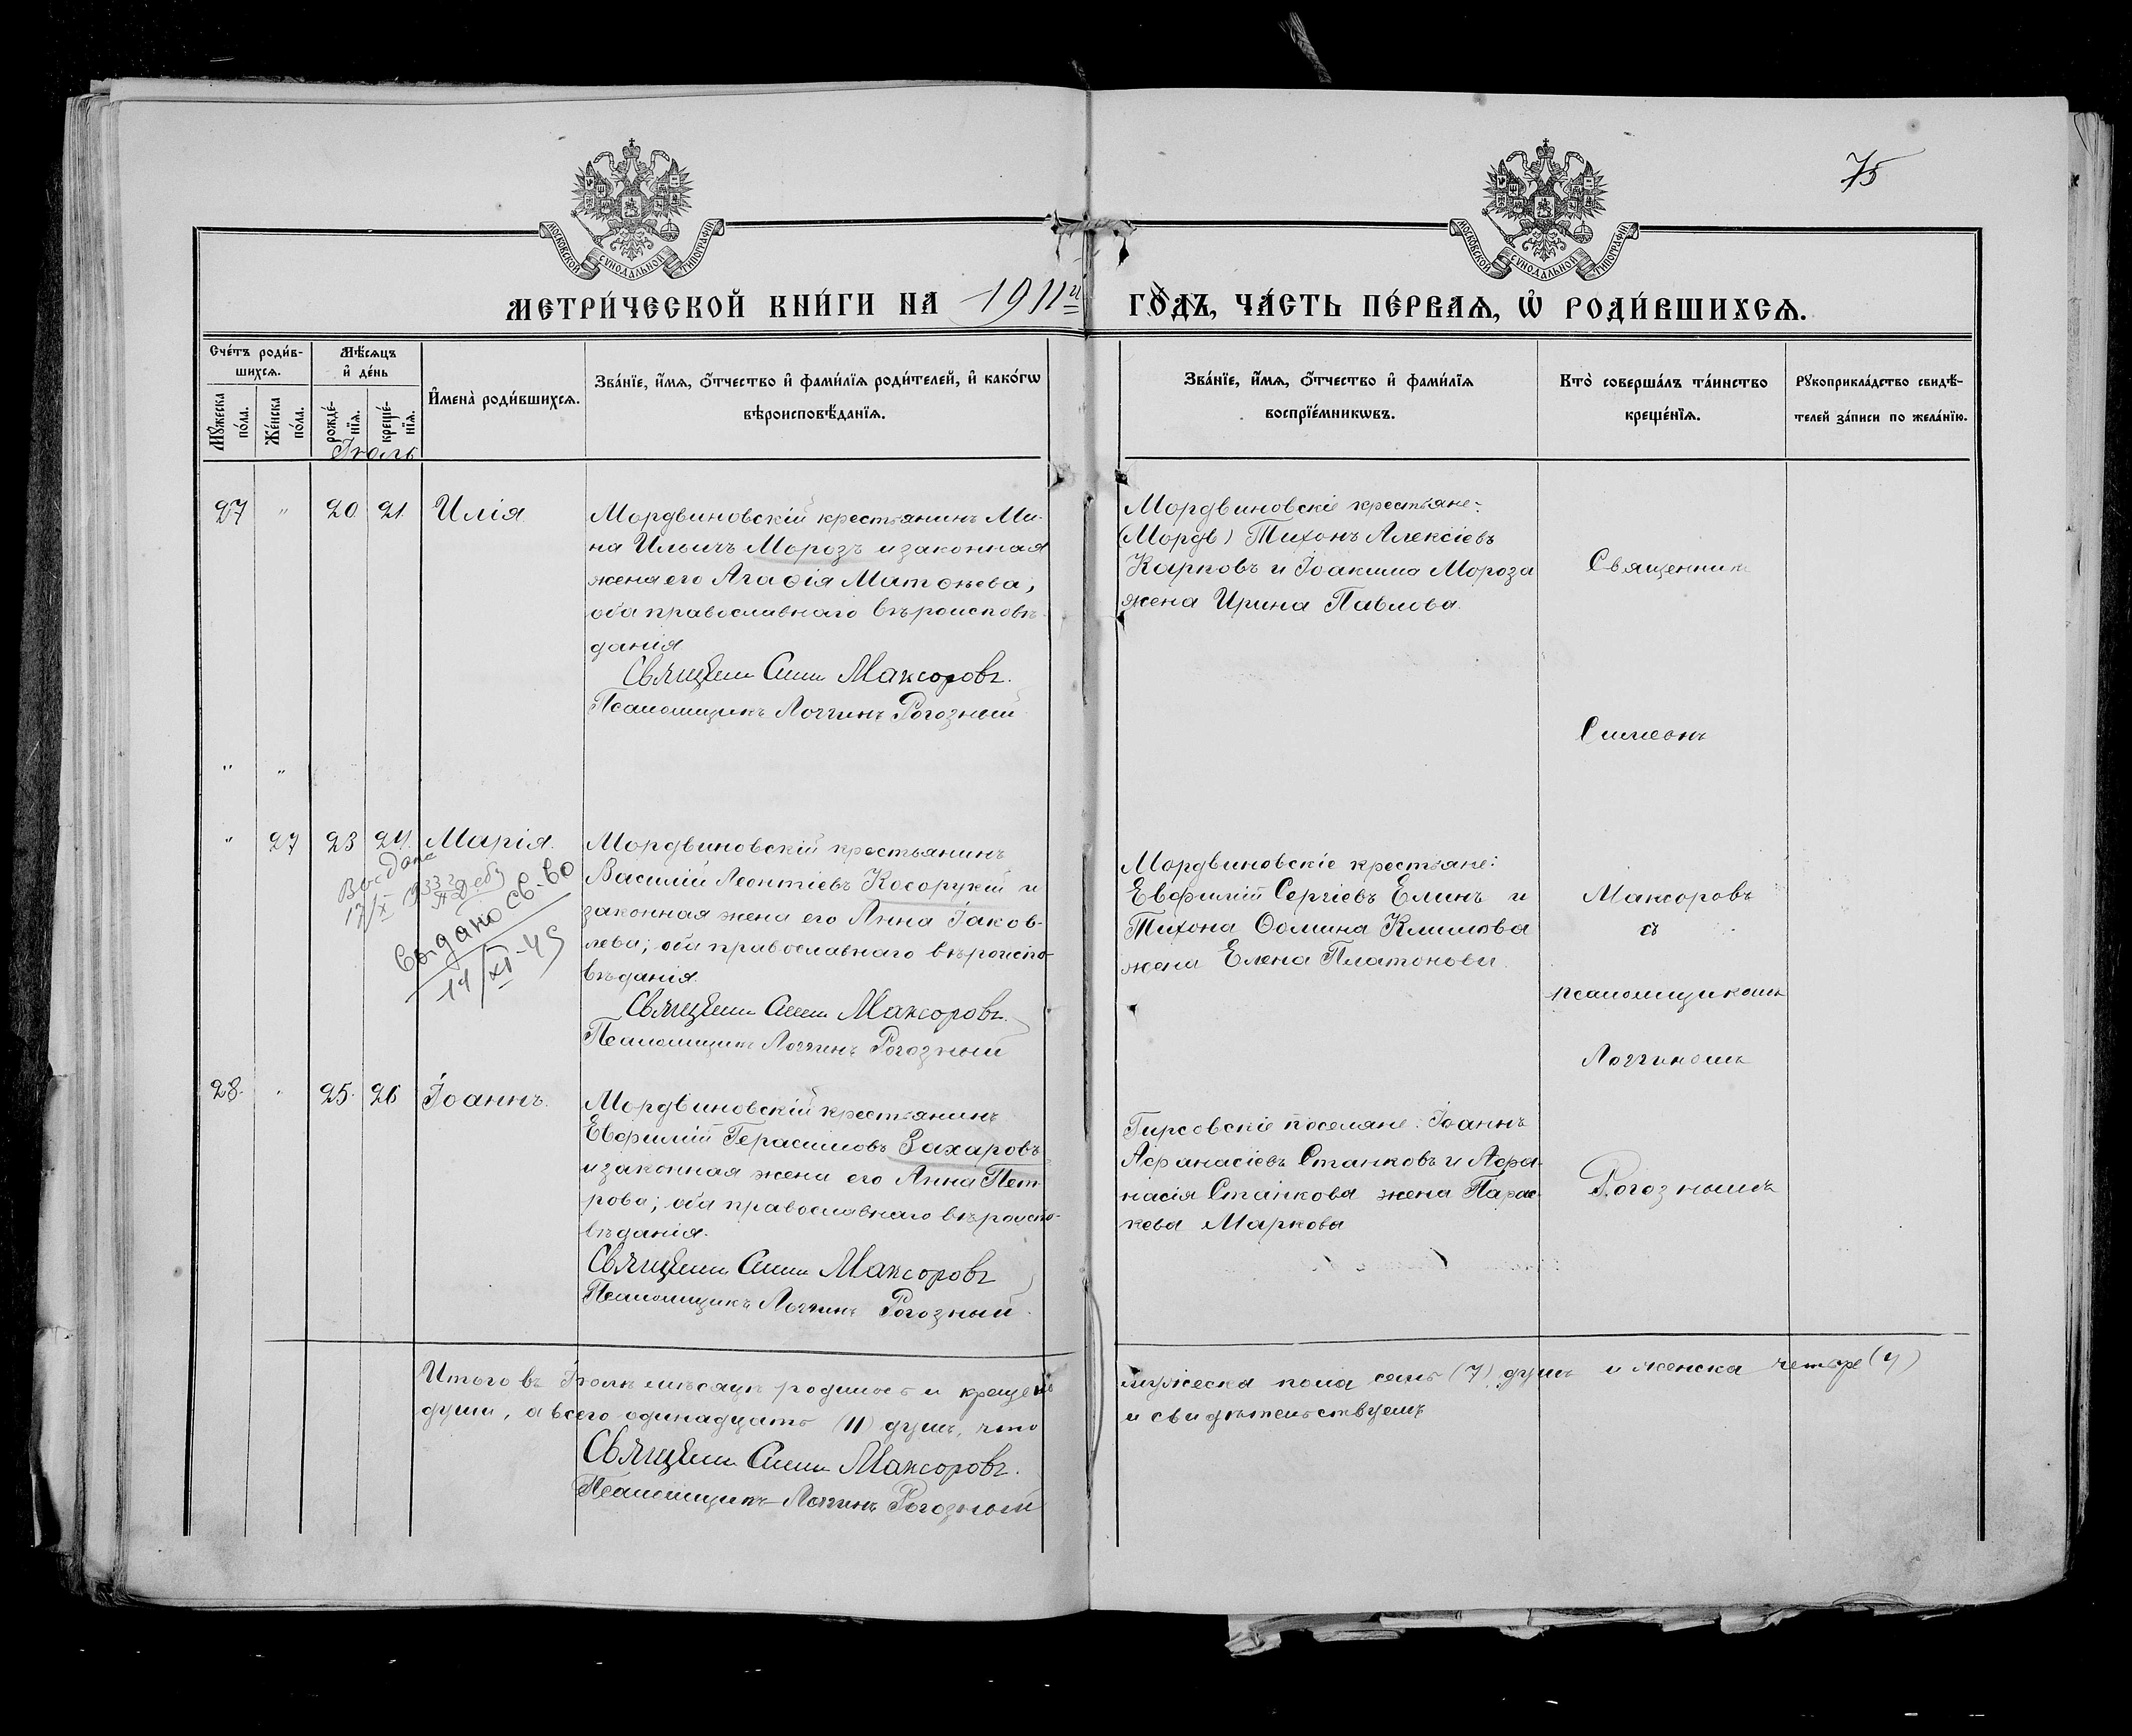 75
МОСКОВСКОЙ СѴНОДАЛЬНОЙ ТИПОГРАФІИ
МОСКОВСКОЙ СѴНОДАЛЬНОЙ ТИПОГРАФІИ
МЕТРИ́ЧЕСКОЙ КНИ́ГИ НА 1911й ГО́ДЪ, ЧА́СТЬ ПЕ́РВАѦ, Ѡ҆ РОДИ́ВШИХСѦ.
Сче́тъ роди́в-
шихсѧ.
Мꙋ́жеска по́ла.
Же́нска по́ла.
Мѣ́сѧцъ
и҆ де́нь
рожде́-
нїѧ.
креще́-
нїѧ.
И҆мена̀ роди́вшихсѧ.
Зва́нїе, и҆́мѧ, ѻ҆́тчество и҆ фами́лїѧ роди́телей, и҆ како́гѡ
вѣроисповѣ́данїѧ.
Зва́нїе, и҆́мѧ, ѻ҆́тчество и҆ фами́лїѧ
воспрїе́мникѡвъ.
Кто̀ соверша́лъ та́инство
креще́нїѧ.
Рꙋкоприкла́дство свидѣ́-
телей за́писи по жела́нїю.
Іюль
27 " 20 21 Илія
Мордвиновскій крестьянинъ Ми-
на Ильичъ Морозъ и законная
жена его Агаѳія Матѳѣева,
оба православнаго вѣроисповѣ-
данія
Священ Симе Максоровъ.
Псаломщикъ Логгинъ Рогозный
Мордвиновскіе крестьяне:
(Мордв) Тихонъ Алексіевъ
Карповъ и Іоакима Мороза
жена Ирина Павлова.
Священник
Симеонъ
" "
" 27 23 24 Марія.
Мордвиновскій крестьянинъ
Василій Леонтіевъ Косорукій и
законная жена его Анна Іаков-
лева; оба православнаго вѣроиспо-
вѣданія.
Священ Симе Максоровъ.
Псаломщикъ Логгинъ Рогозный
17/X 1933
Выдано св-во
14/XI-45
Мордвиновскіе крестьяне:
Евфимій Сергіевъ Елинъ и
Тихона Ѳомина Климова
жена Елена Платонова.
Максоровъ
съ
псаломщикомъ
Логгиномъ
28. " 25. 26 Іоаннъ.
Мордвиновскій крестьянинъ
Евфимій Герасимовъ Захаровъ
и законная жена его Анна Пет-
рова; оба православнаго вѣроиспо-
вѣданія.
Священ Симе Максоровъ
Псаломщикъ Логгинъ Рогозный.
Гирсовскіе поселяне: Іоаннъ
Аѳанасіевъ Станковъ и Аѳа-
насія Станкова жена Парас-
кева Маркова
Рогознымъ
Итого въ Іюлѣ мѣсяцѣ родилось и крещено мужеска пола семь (7) душъ и женска четыре (4)
души, а всего одинадцать (11) душъ, что и свидѣтельствуемъ
Священ Симе Максоровъ.
Псаломщикъ Логгинъ Рогозный